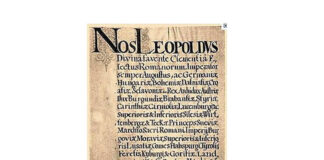 NOS LEOPOLDVS
Divina favente Clementia E,
lectus Romanorum Imperator
semper Augustus, ac Germaniæ
Hungariæ, Bohemiæ, Dalmatiæ Cro,
atiæ, Sclavoniæ, Rex, Archidux Austriæ
Dux Burgundiæ, Brabantiæ, Styriæ,
Carinthiæ, Carniolæ, Marchio
Moraviæ, Dux Luxemburgæ
Superioris & Inferioris Silesiæ, Wirt,
tembergæ, & Teckæ, Princeps Sueviæ,
Marchio Sacri Romani Imperij Bur,
goviæ, Moraviæ, Superioris & Infe
Lusatiæ, Comes Habspurgi Tyrolis
Ferretis Kyburgi & Goritiæ, Land,